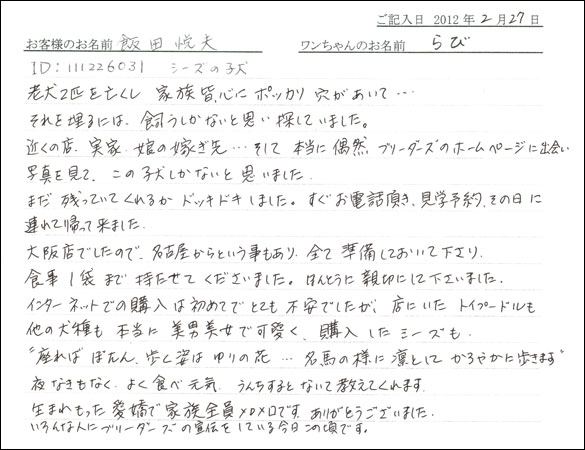 ご記入日 2012年2月27日
お客様のお名前 飯田悦夫 ワンちゃんのお名前 らび
ID：111226031 シーズの子犬
老犬2匹を亡くし 家族皆、心に ポッカリ 穴があいて…
それを埋るには、飼うしかないと思い探していました。
近くの店、実家、娘の嫁ぎ先…そして 本当に偶然、ブリーダーズのホームページに出会い
写真を見て、この子犬しかないと思いました。
まだ 残っていてくれるか ドッキドキしました。すぐお電話頂き、見学予約、その日に
連れて帰って来ました。
大阪店でしたので、名古屋からという事もあり、全て準備しておいて下さり、
食事1袋まで持たせてくださいました。ほんとうに親切にして下さいました。
インターネットでの購入は初めてでとても不安でしたが、店にいたトイプードルも
他の犬種も 本当に美男美女で可愛く、購入したシーズも
“座れば ぼたん、歩く姿は ゆりの花… 名馬の様に凛として かろやかに歩きます”
夜なきもなく、よく食べ元気、うんちすると ないて教えてくれます。
生まれもった愛嬌で家族全員メロメロです。ありがとうございました。
いろんな人にブリーダーズの宣伝をしている今日この頃です。